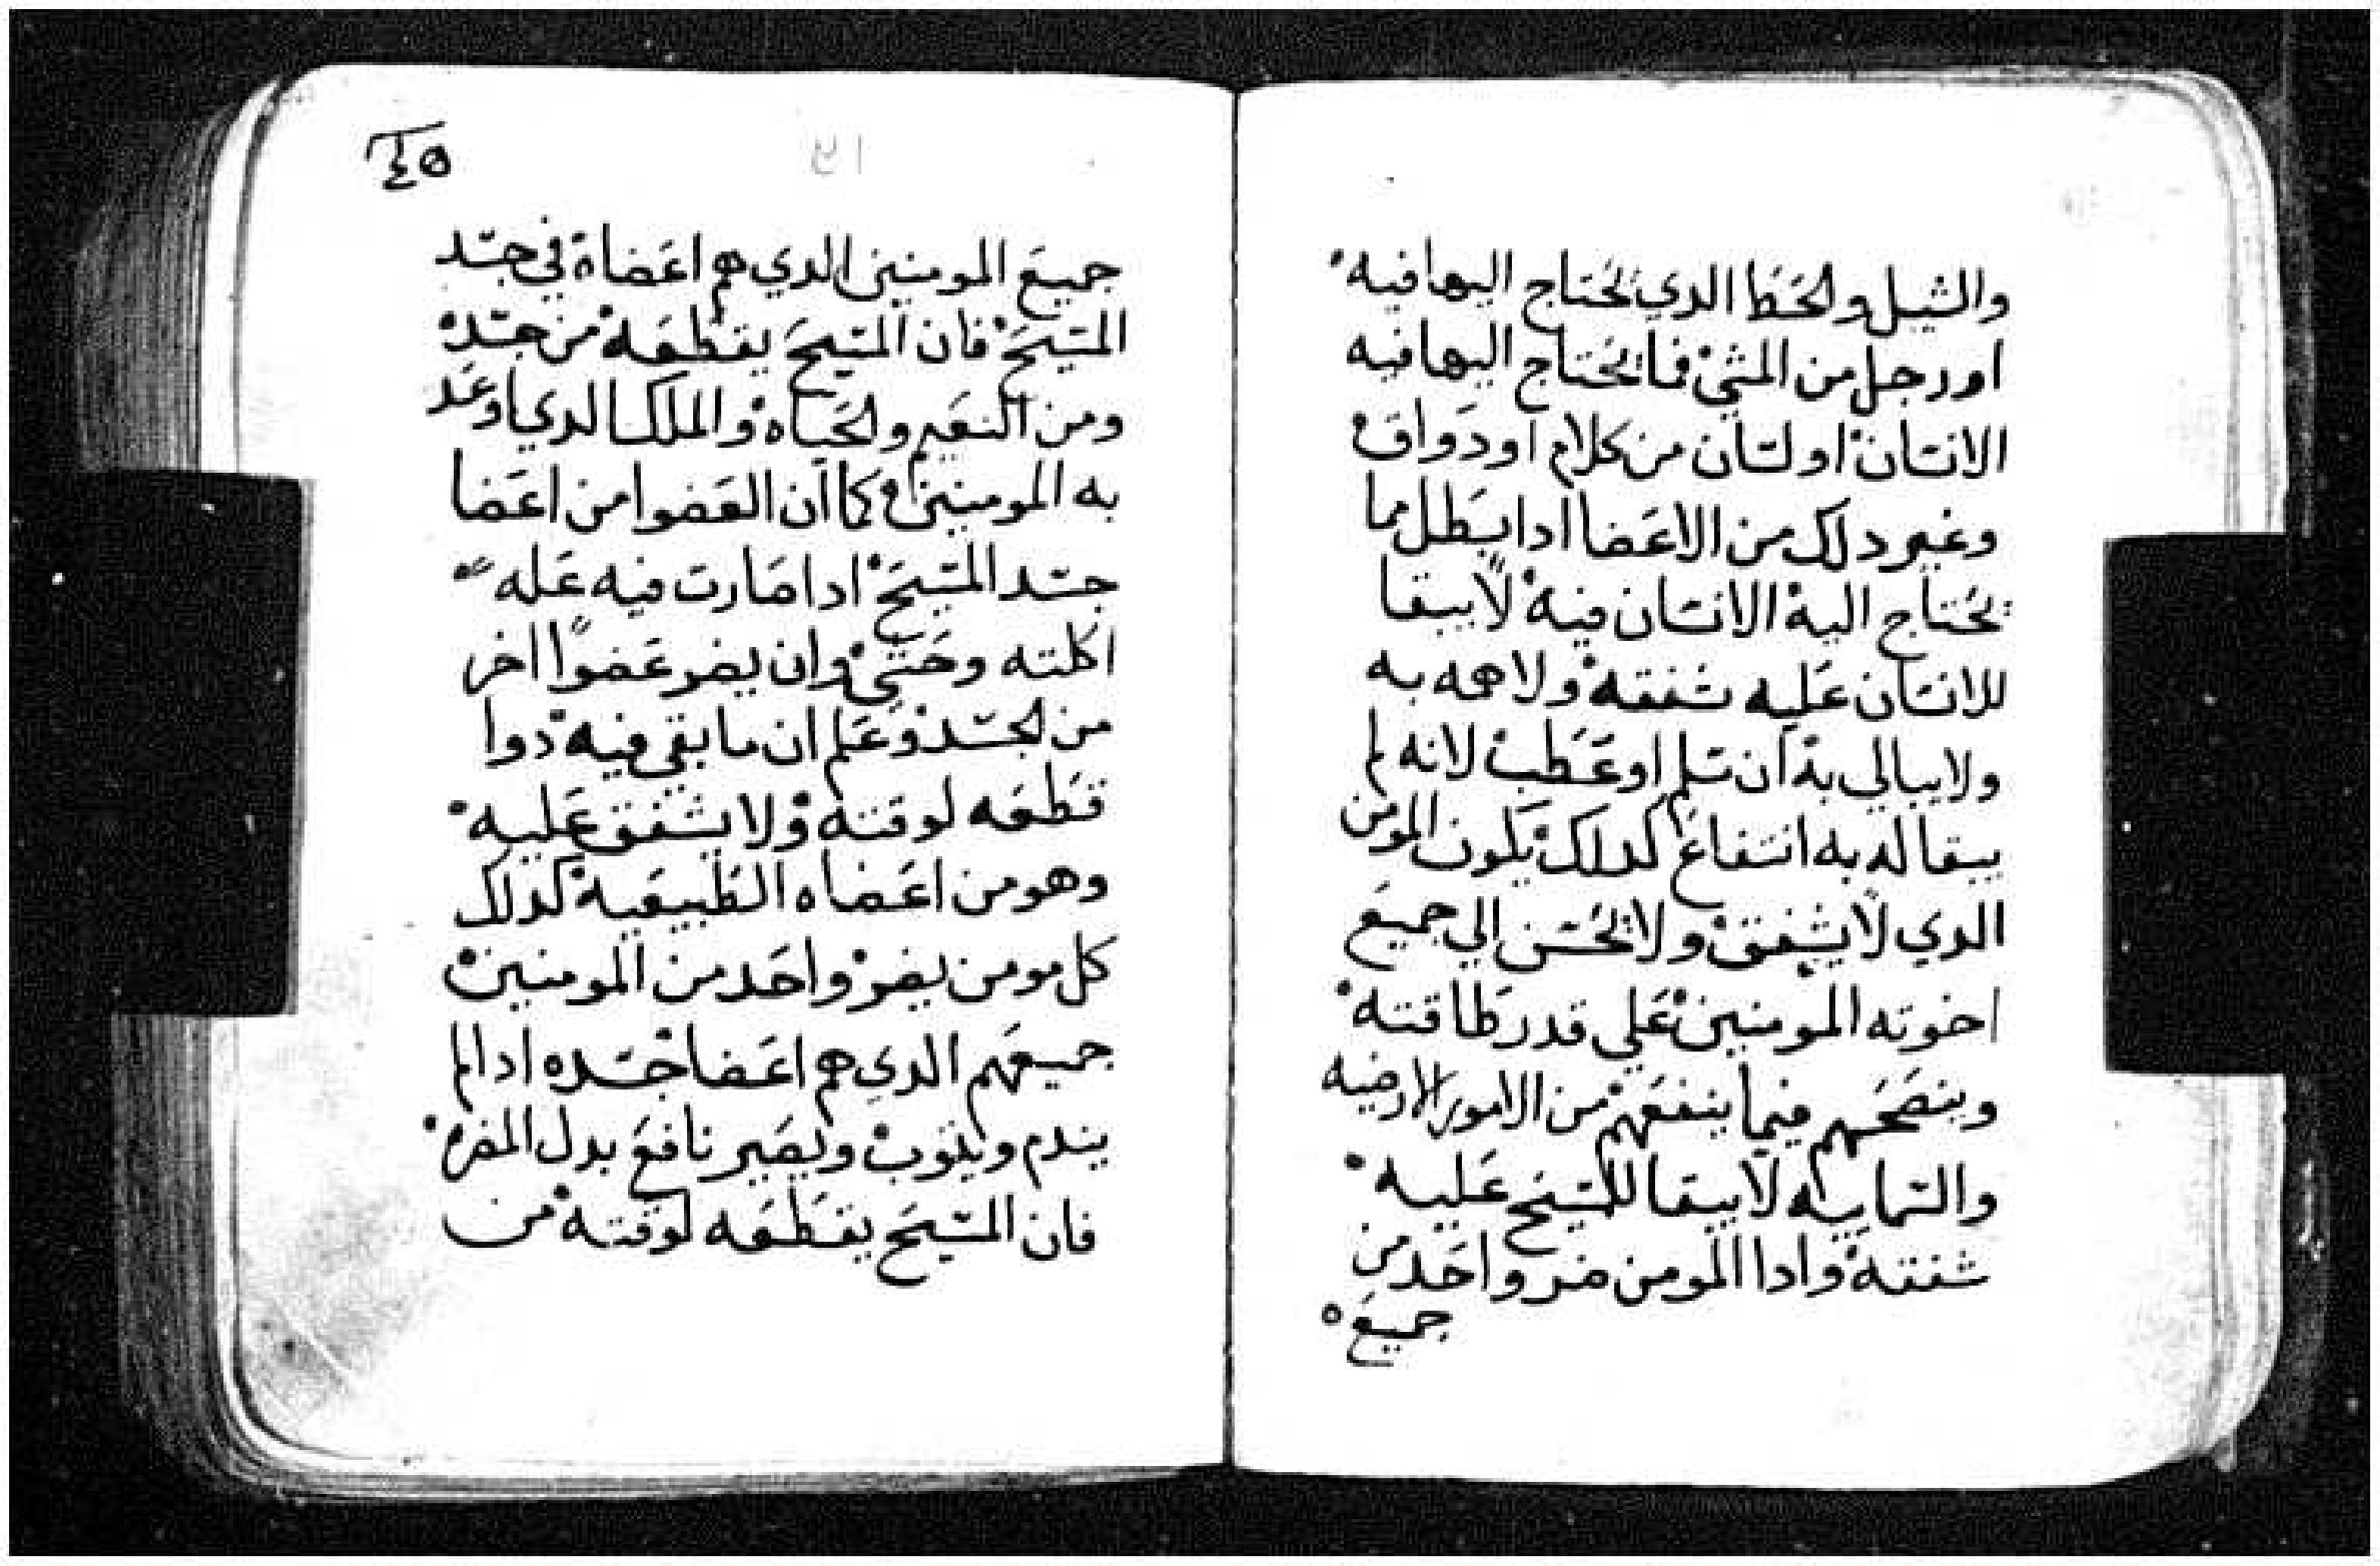 والشيل والحط الدي يحتاج اليها فيه
او رجل من المشي فما يحتاج اليها فيه
الانسان او لسان من كلام او دواق
وغير دلك من الاعضا ادا بطل مما
يحتاج اليه الانسان فيه لا يبقا
للانسان عليه شفقه ولا همه به
ولا يبالي به ان سلم او عطب لانه لم
يبقا له به انتفاع كدلك يكون المومن
الدي لا يشفق ولا يحسن الي جميع
اخوته المومنين علي قدر طاقته
وينصحهم فيما ينفعهم من الامور الارضيه
والسمايه لا يبقا للمسيح عليه
شفقته وادا المومن ضر واحد من
جميع
٤٥
جميع المومنين الدي هم اعضاة في جسد
المسيح فان المسيح يقطعه من جسده
ومن النعيم والحياه والملك الدي اوعد
به المومنين كما ان العضوا من اعضا
جسد المسيح ادا صارت فيه عله
اكلته وحتي وان يضر عضوا اخر
من الجسد وعلم ان ما بقي فيه دوا
قطعه لوقته ولا يشفق عليه
وهو من اعضاه الطبيعيه كدلك
كل مومن يضر واحد من المومنين
جميعهم الدي هم اعضا جسده ادا لم
يندم ويتوب ويصير نافع بدل المضر
فان المسيح يقطعه لوقته من